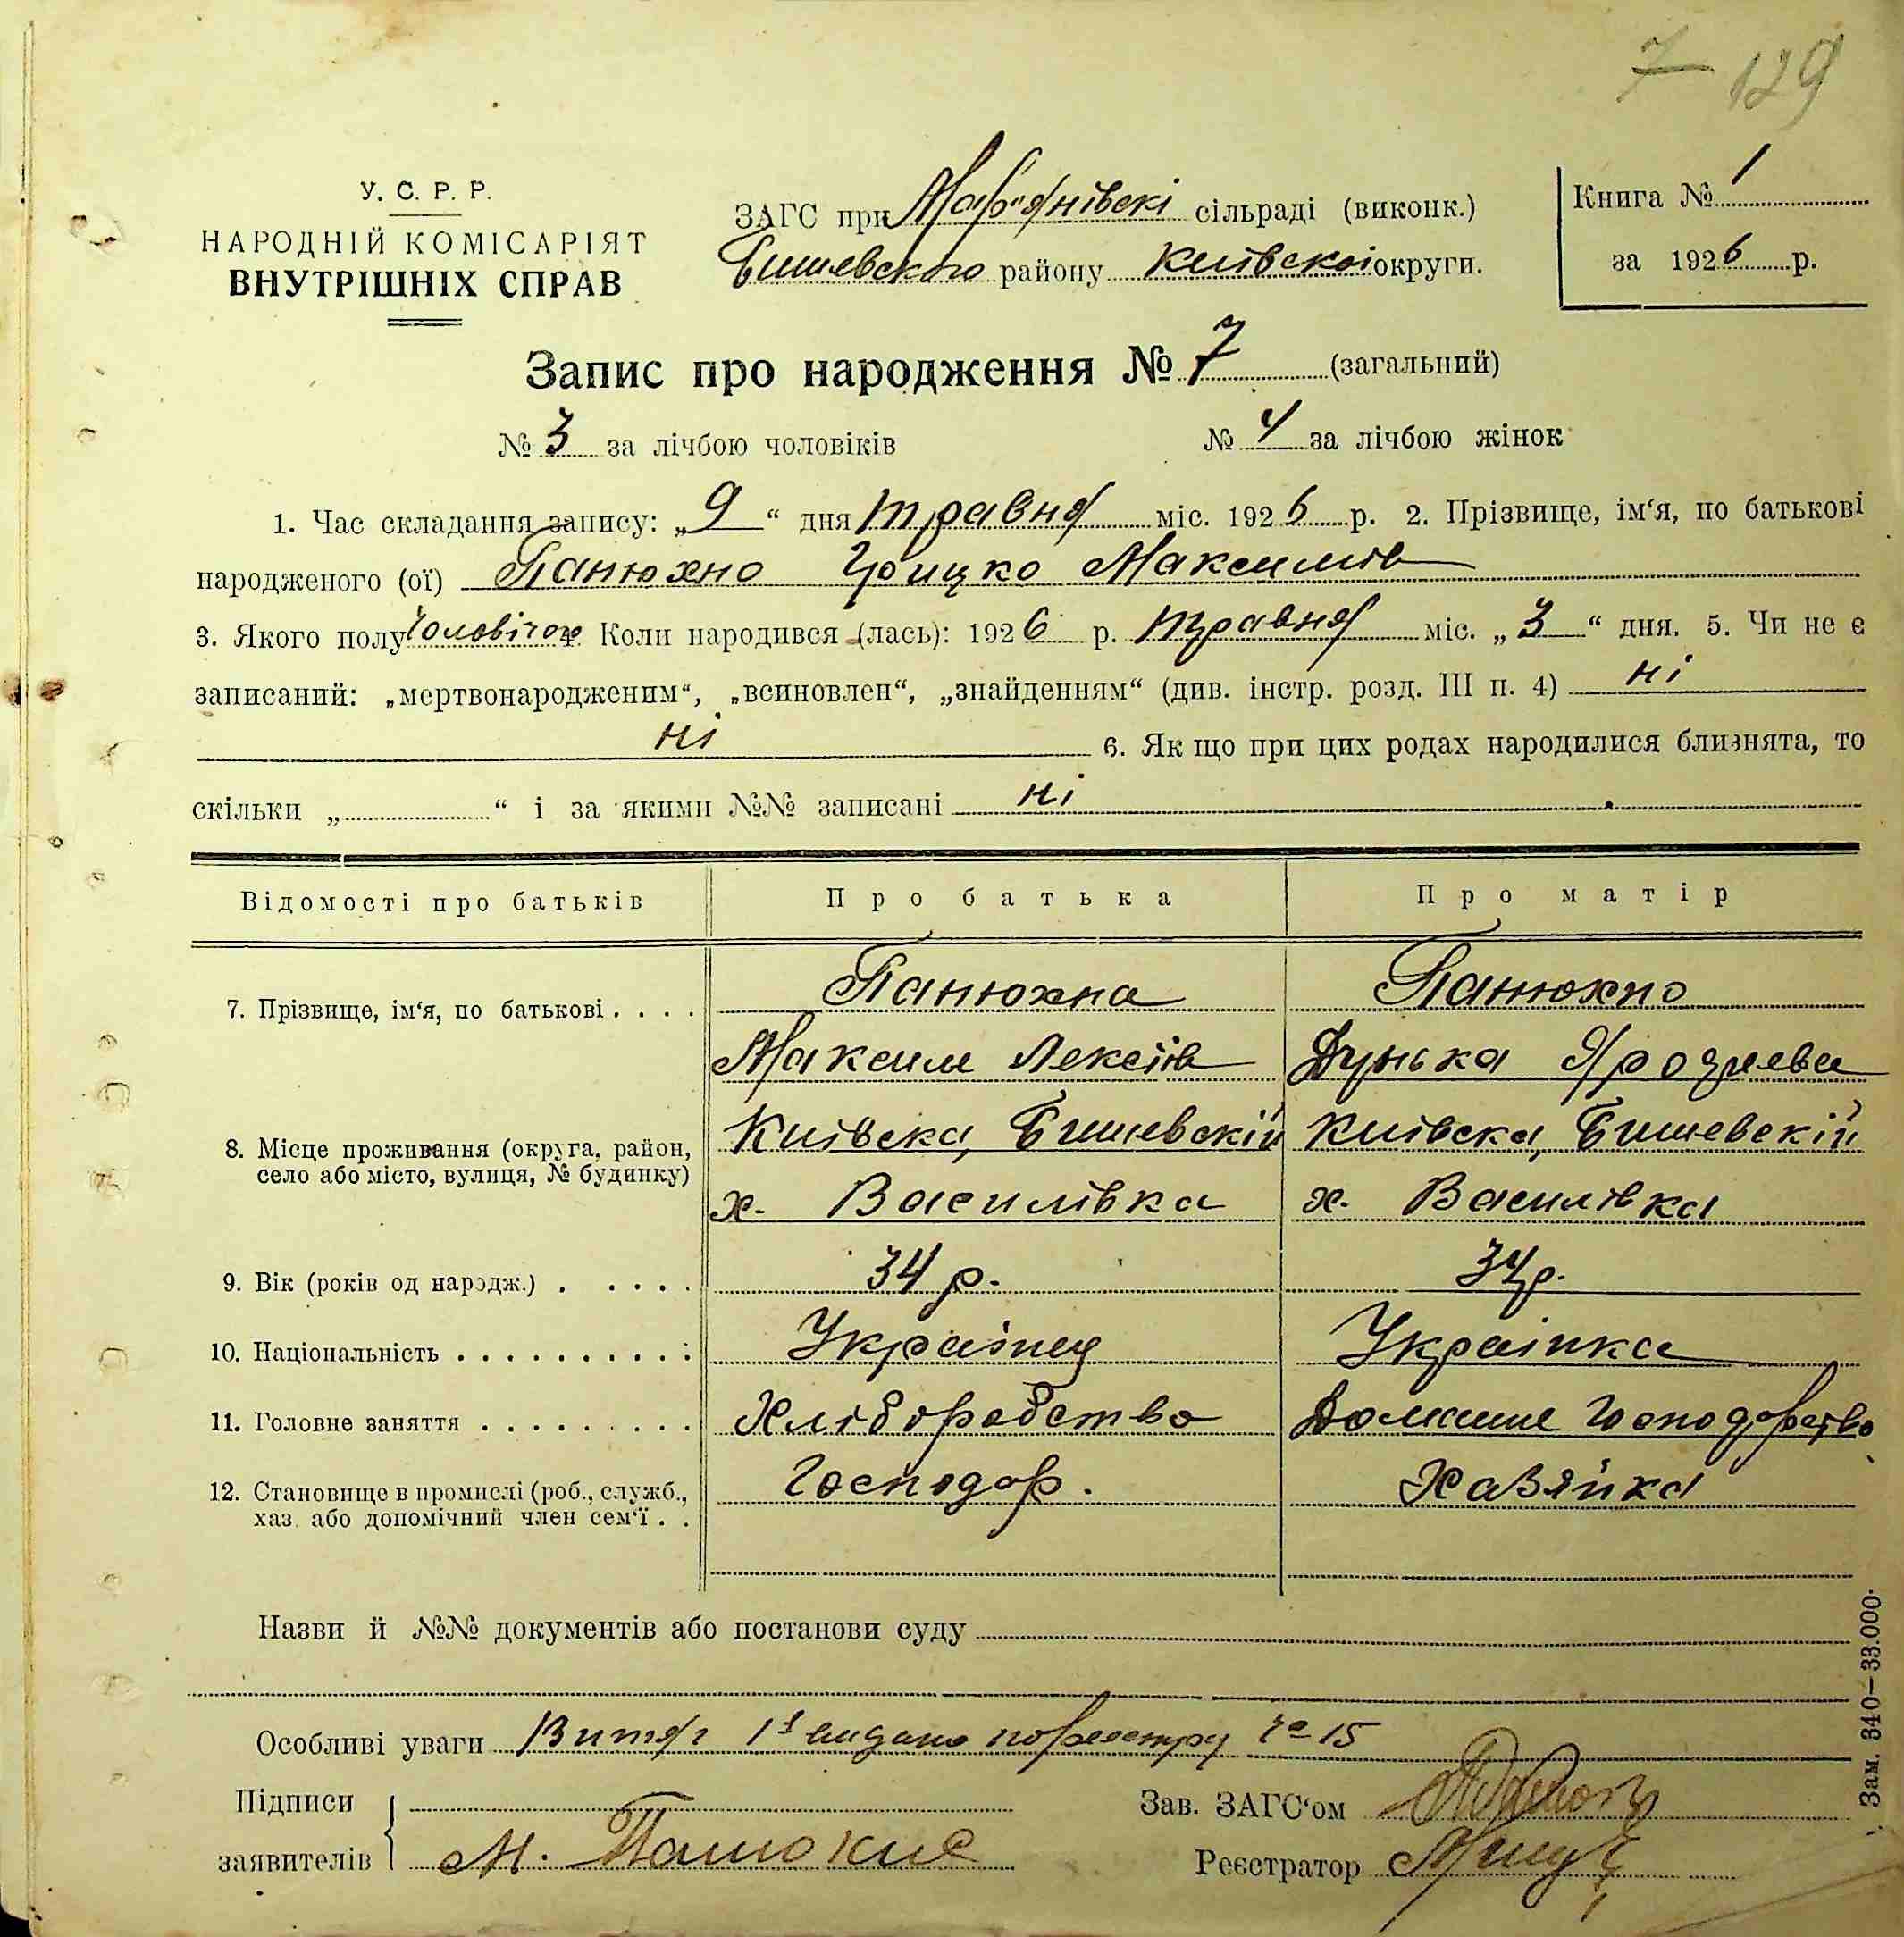 7 129
У. С. Р. Р.
НАРОДНІЙ КОМІСАРІЯТ
ВНУТРІШНІХ СПРАВ
ЗАГС при Мар'янівскі сільраді (виконк.)
Бишевского району Київскоі округи.
Книга № 1
за 1926 р.
Запис про народження № 7 (загальний)
№ 3 за лічбою чоловіків № 4 за лічбою жінок
1. Час складання запису: „9“ дня травня міс. 1926 р. 2. Прізвище, ім‘я, по батькові
народженого (ої) Панюхно Грицко Максимів
3. Якого полу Чоловічох Коли народився (лась): 1926 р. травня міс. „3“ дня. 5. Чи не є
записаний: „мертвонародженим“, „всиновлен“, „знайденням“ (див. інстр. розд. III п. 4) ні
ні 6. Як що при цих родах народилися близнята, то
скільки „ “ і за якими №№ записані ні
Відомості про батьків Про батька Про матір
7. Прізвище, ім‘я, по батькові . . . . Панюхна Панюхно
Максим Лексіїв Дунька
8. Місце проживання (округа, район, Київска, Бишевскій Київска, Бишевскій
село або місто, вулиця, № будинку) х. Василівка х. Василівка
9. Вік (років од народж.) . . . . . 34 р. 34 р.
10. Національність . . . . . . . . . . Українец Українка
11. Головне заняття . . . . . . . . . Хліборобство Домашне Господарство
12. Становище в промислі (роб., служб., Господар. Хазяйка
хаз. або допомічний член сем‘ї . .
Назви й №№ документів або постанови суду
Особливі уваги Витяг 1й видано по реестру № 15
Підписи
заявителів М.
Зав. ЗАГС‘ом
Реєстратор
Зам. 340—33.000.